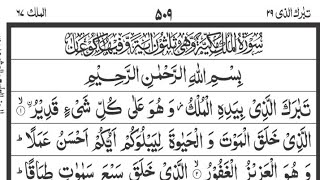 تبٰرك الذی ۲۹ ۵۰۹ الملك ۶۷
سُوْرَةُ الْمُلْكِ مَكِّيَّةٌ وَّهِيَ ثَلٰثُوْنَ اٰيَةً وَّفِيْهَا رُكُوْعَانِ
بِسْمِ اللّٰهِ الرَّحْمٰنِ الرَّحِيْمِ
تَبٰرَكَ الَّذِيْ بِيَدِهِ الْمُلْكُ وَ هُوَ عَلٰى كُلِّ شَيْءٍ قَدِيْرُ ۙ﴿۱﴾
الَّذِيْ خَلَقَ الْمَوْتَ وَ الْحَيٰوةَ لِيَبْلُوَكُمْ اَيُّكُمْ اَحْسَنُ عَمَلًا ؕ
وَ هُوَ الْعَزِيْزُ الْغَفُوْرُ ۙ﴿۲﴾ الَّذِيْ خَلَقَ سَبْعَ سَمٰوٰتٍ طِبَاقًا ؕ